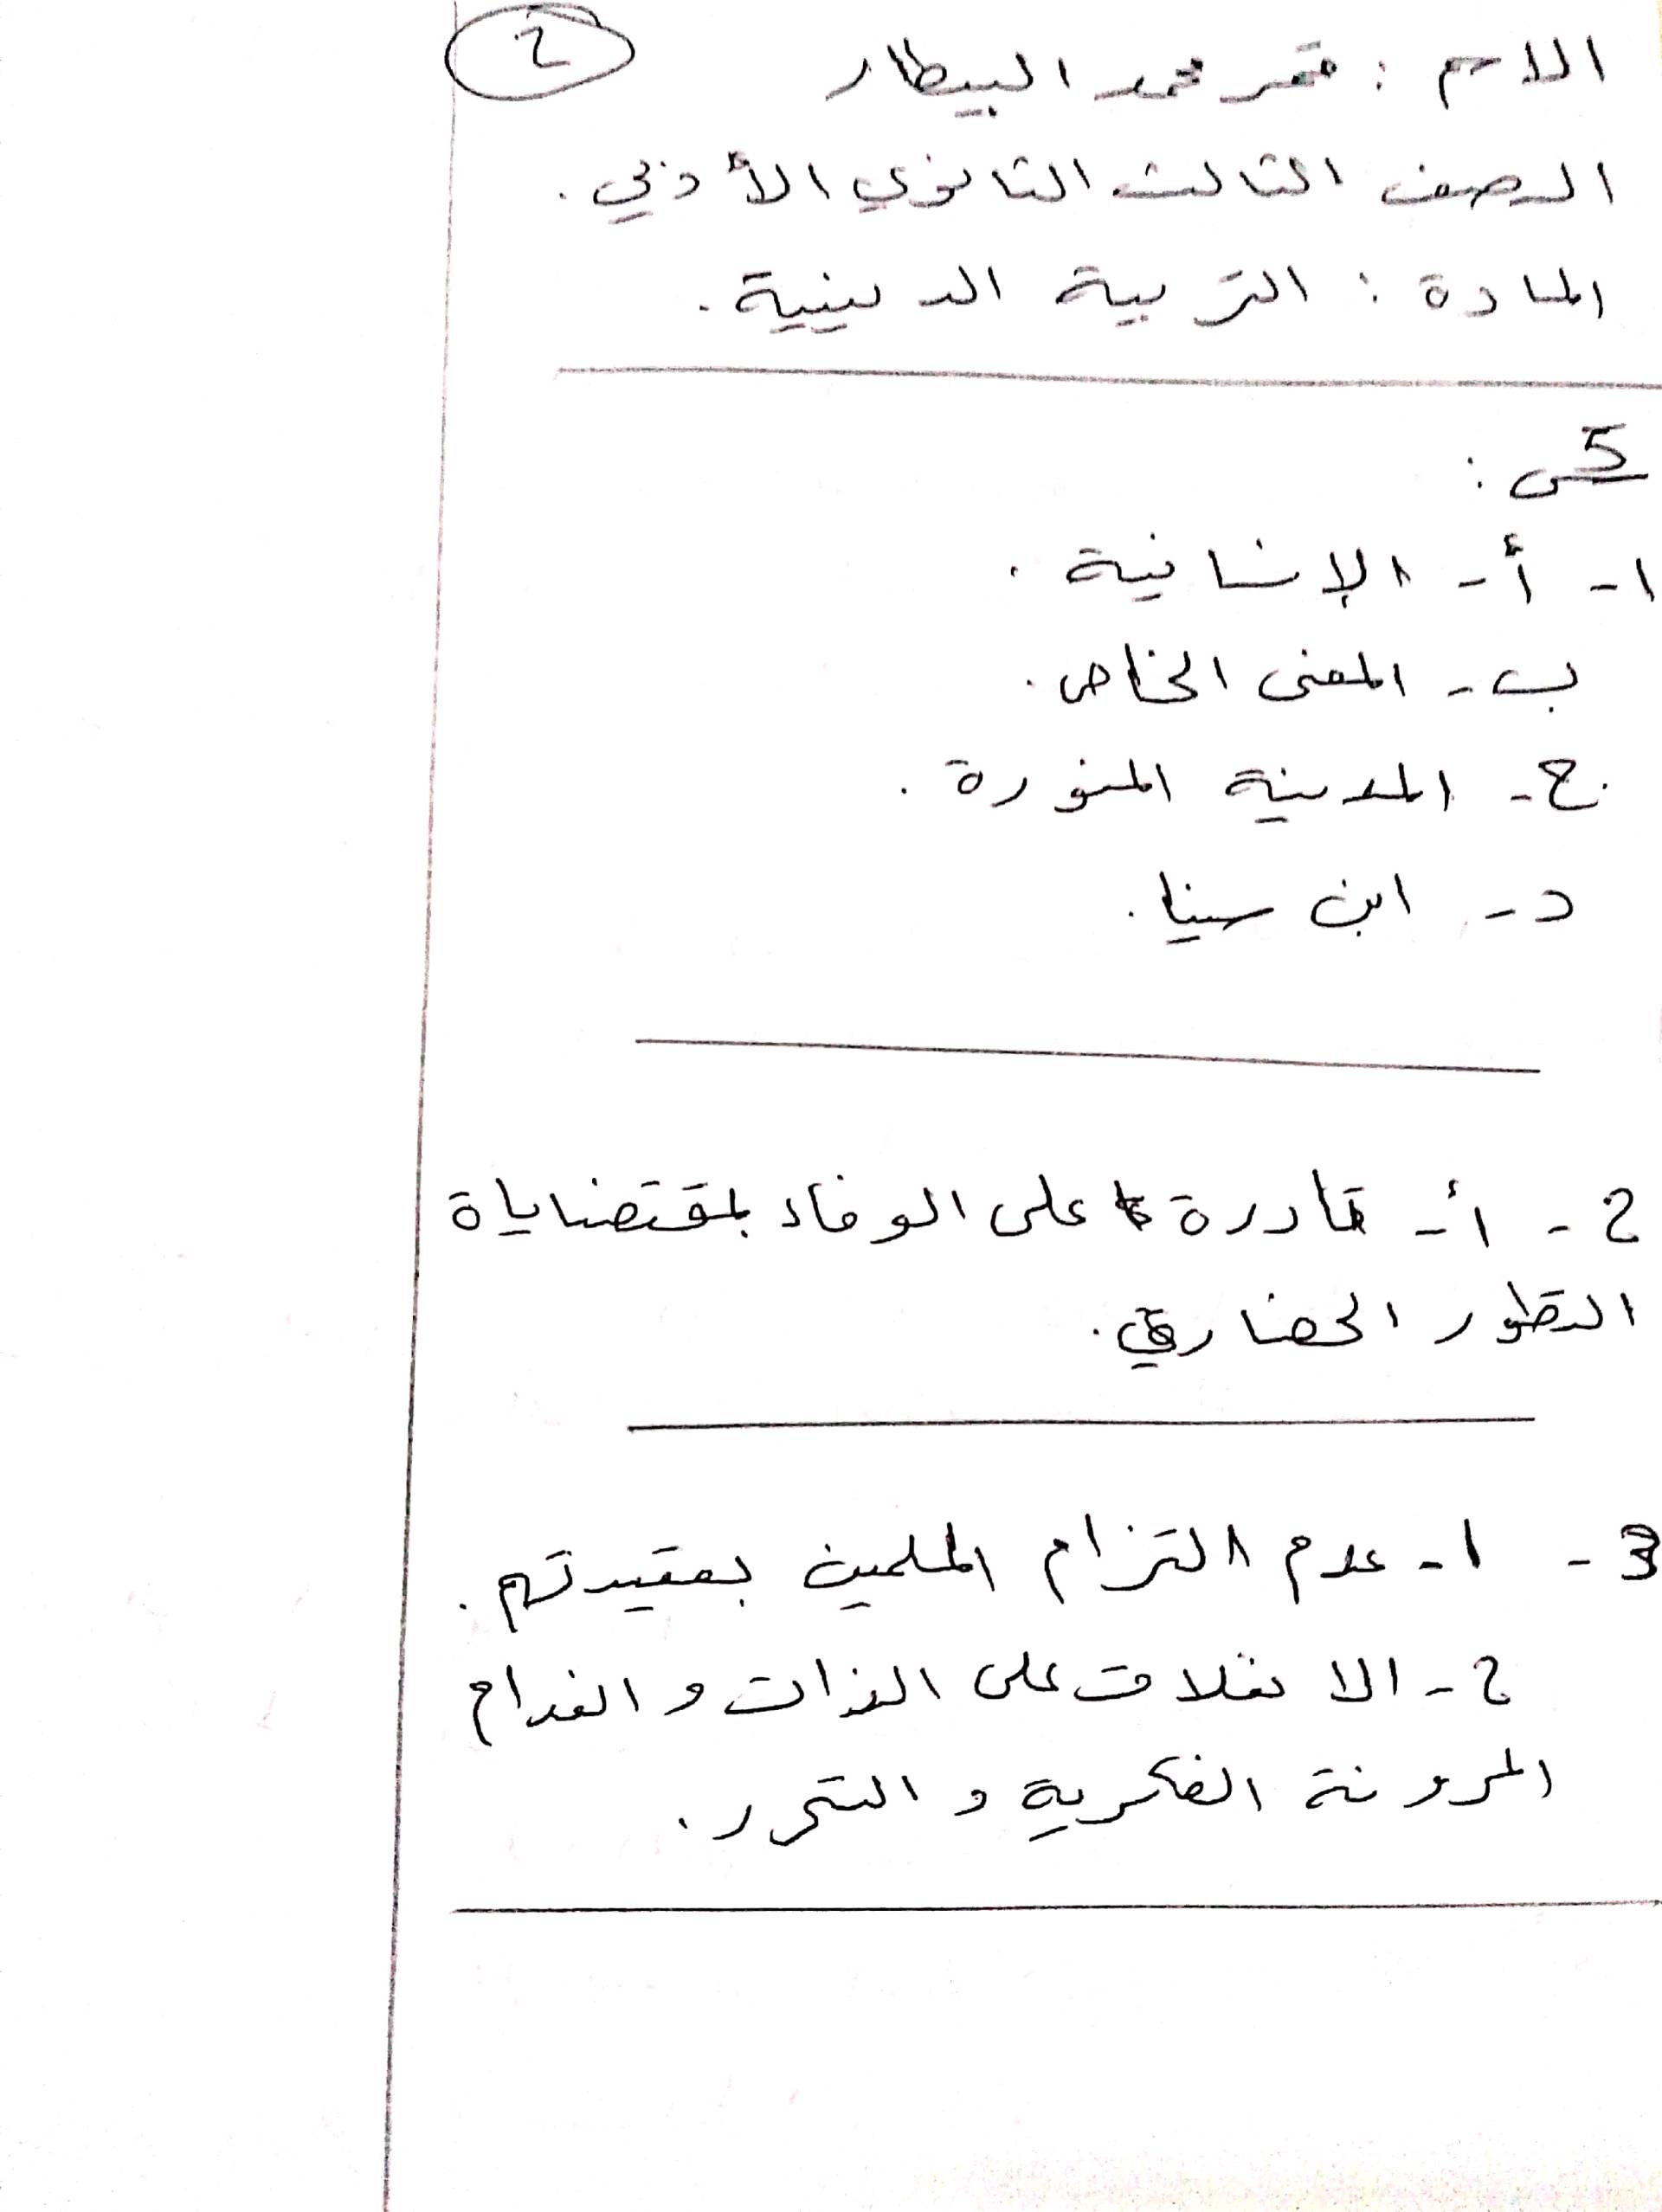 2
الاسم : قمر محمد البيطار
الصف الثالث الثانوي الأدبي .
المادة : التربية الدينية .
س5 :
1- أ- الإنسانية .
ب- المعنى الخاص .
ج- المدينة المنورة .
د- ابن سينا .
2- أ- قادرة على الوفاء بلمقتضاياة
التطور الحضاري .
3- 1- عدم التزام المسلمين بعقيدتهم .
2- الانغلاق على الذات و انعدام
المرونة الفكرية و التحرر .